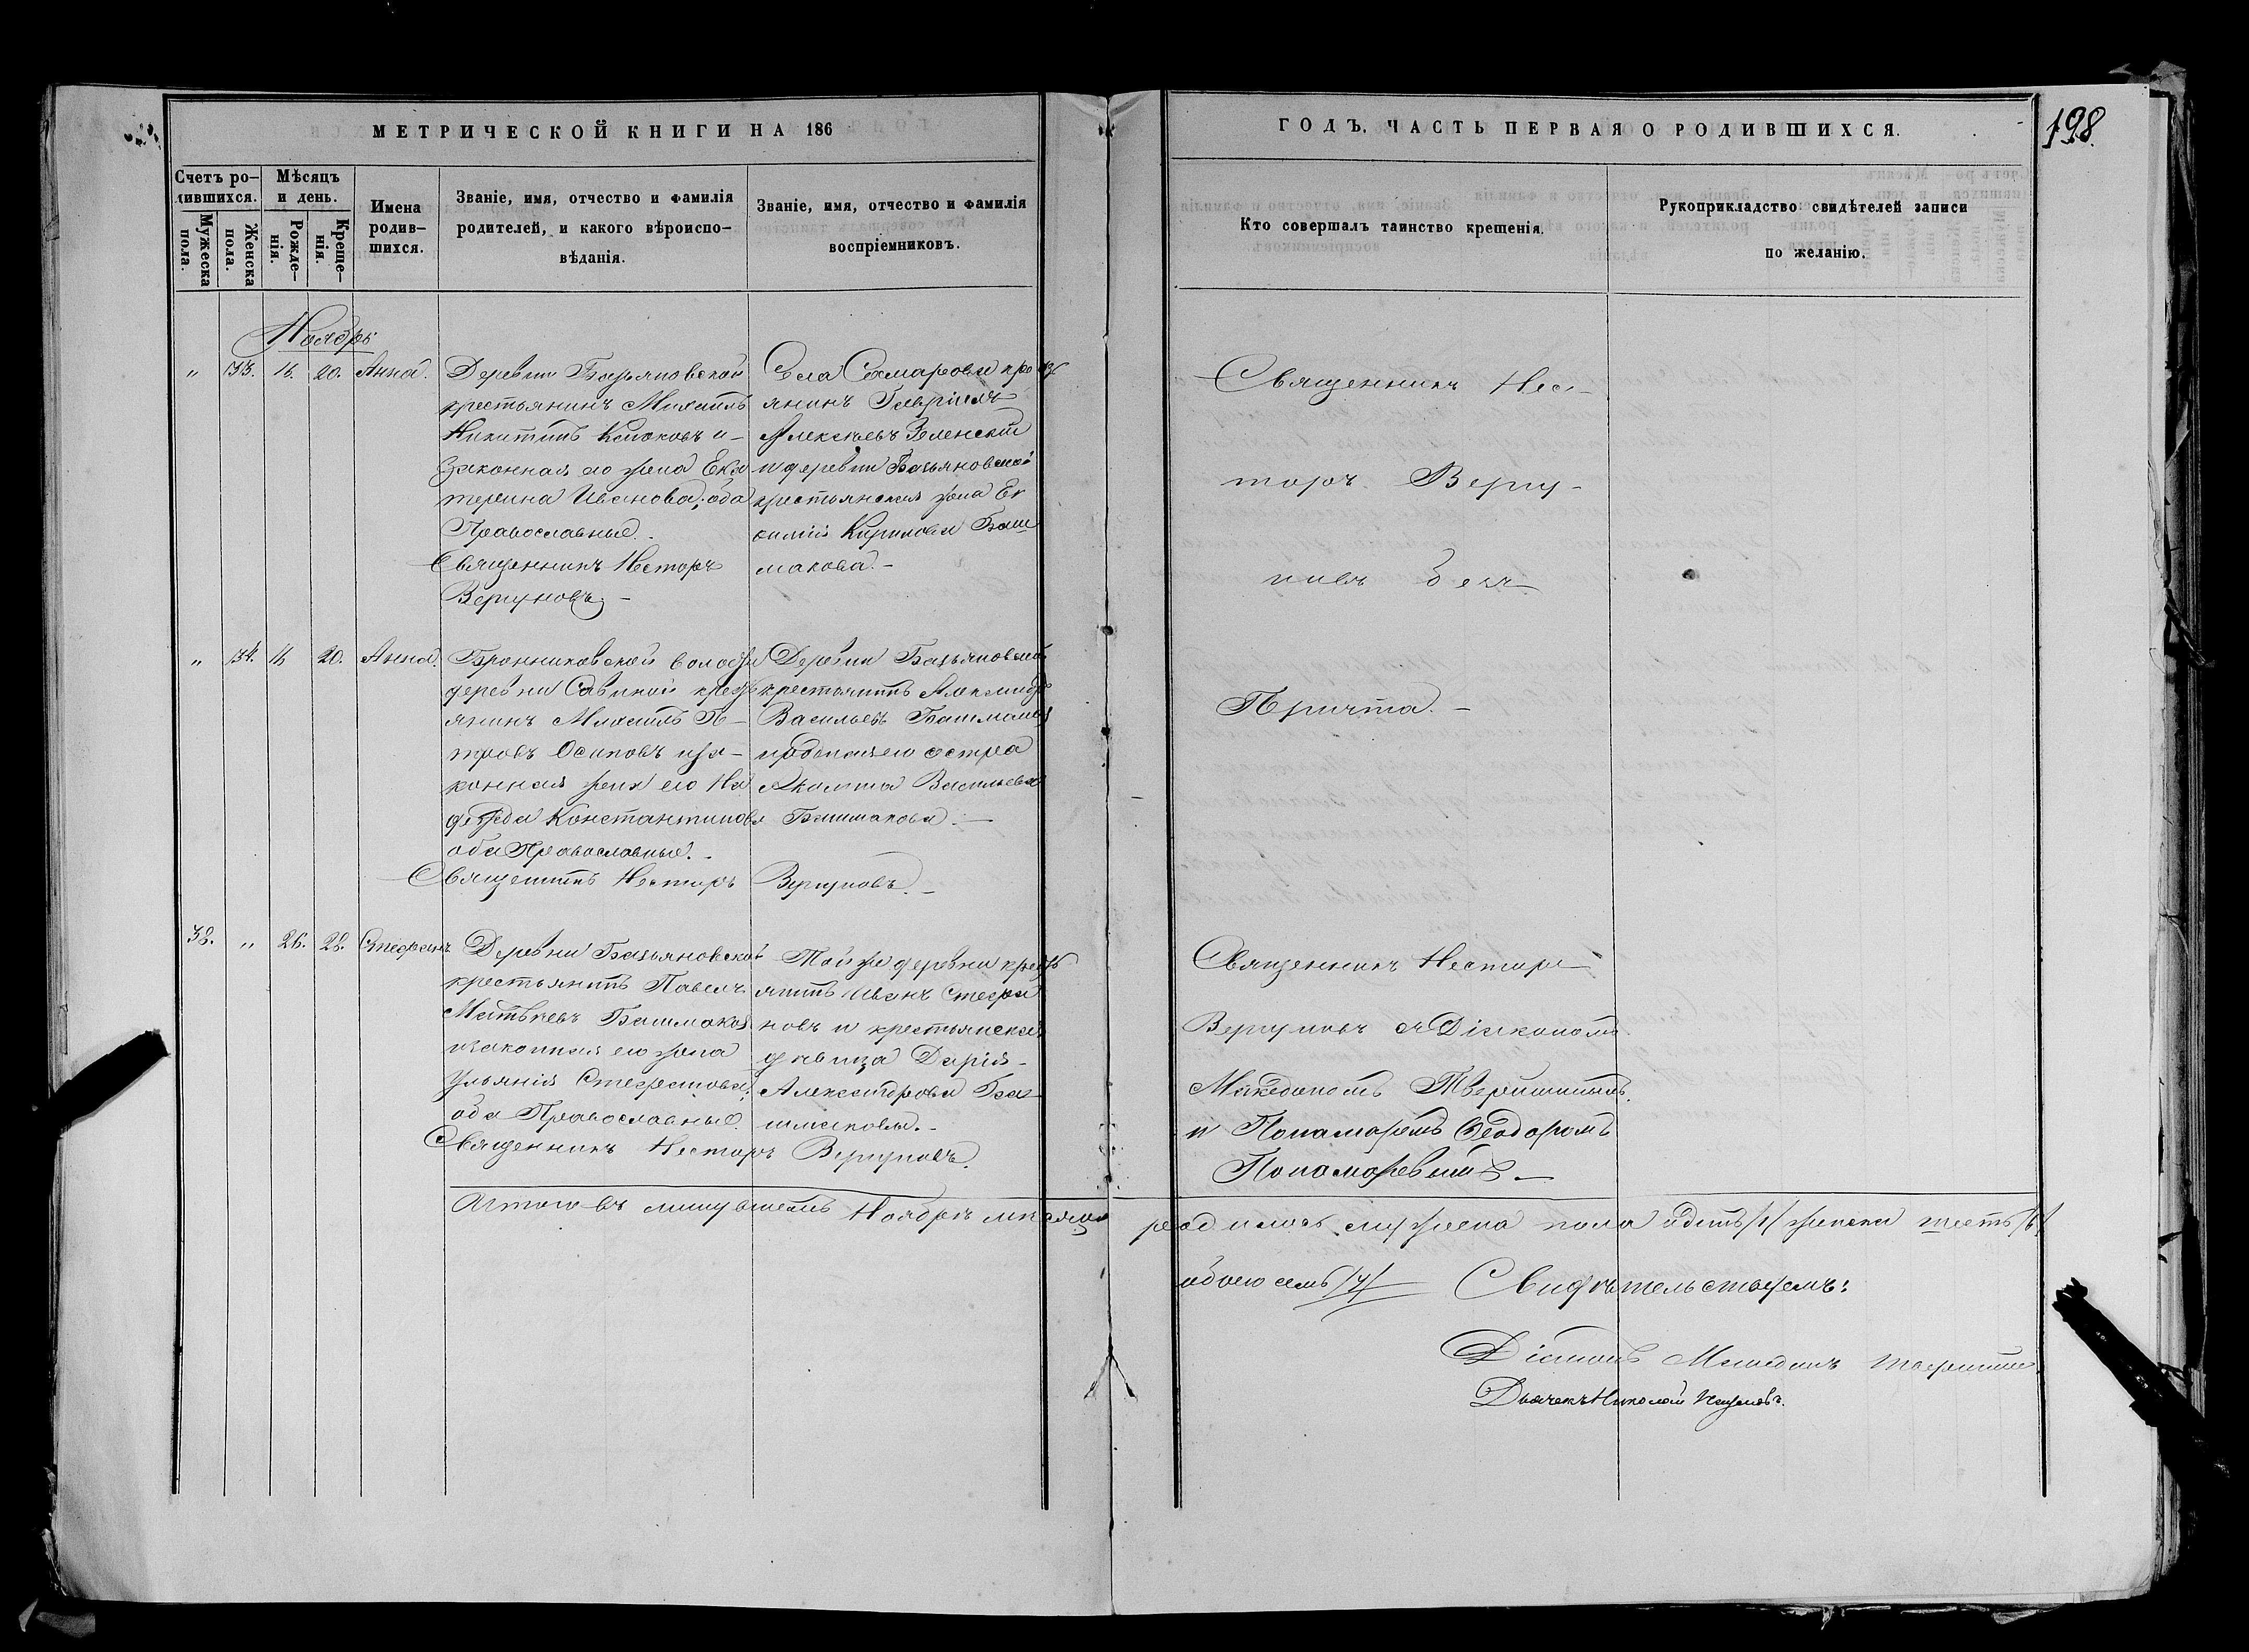 МЕТРИЧЕСКОЙ КНИГИ НА 186
ГОДЪ. ЧАСТЬ ПЕРВАЯ О РОДИВШИХСЯ.
198.
Счетъ ро-
дившихся.
Мужеска пола.
Женска пола.
Мѣсяцъ
и день.
Рожде-
нія.
Креще-
нія.
Имена
родив-
шихся.
Званіе, имя, отчество и фамилія
родителей, и какого вѣроиспо-
вѣданія.
Званіе, имя, отчество и фамилія
воспріемниковъ.
Кто совершалъ таинство крещенія.
Рукоприкладство свидѣтелей записи
по желанію.
Ноябрь
" 16. 20. Анна.
Деревни Базьяновской
крестьянинъ Михаилъ
Никитинъ и
законная его жена Ека
терина Иванова, оба
Православные.
Священникъ Несторъ
Вергуновъ
Села Самарова крест
янинъ Гавріилъ
Алексѣевъ Зеленскій
и деревни Базьяновской
крестьянская жена Ев
Кирилова Баш
макова.
Священникъ Нес-
торъ Вергу-
новъ безъ
Причта.
" 34. 20. Анна.
Бронниковской волости
деревни Савиной крест
янинъ Михаилъ Пе-
тровъ Осиповъ и за-
конная жена его На
дежда Константинова
оба Православные.
Священникъ Несторъ Вергуновъ.
Деревни Базьяновской
крестьянинъ Александръ
Васильевъ Башмаковъ
и родная его сестра
Васильева
Башмакова.
38. " 26. 28. Стефанъ
Деревни Базьяновской
крестьянинъ Павелъ
Матвѣевъ Башмаковъ
и законная его жена
Ульянія Стефанова,
оба Православные.
Священникъ Несторъ Вергуновъ.
Той же деревни крест
янинъ Иванъ Стефа
новъ и крестьянская
дѣвица Дарія
Александрова Ба
шмакова.
Священникъ Несторъ
Вергуновъ съ Діакономъ
Македономъ Тверитинымъ.
и Пономаремъ Ѳеодоромъ
Пономаревымъ
Итого въ минувшемъ Ноябрѣ мѣсяцѣ родилось мужеска пола одинъ /1/ женска шесть /6/
обоего семь /7/
Свидѣтельствуемъ:
Діаконъ Македонъ Тверитинъ
Дьячекъ Николай